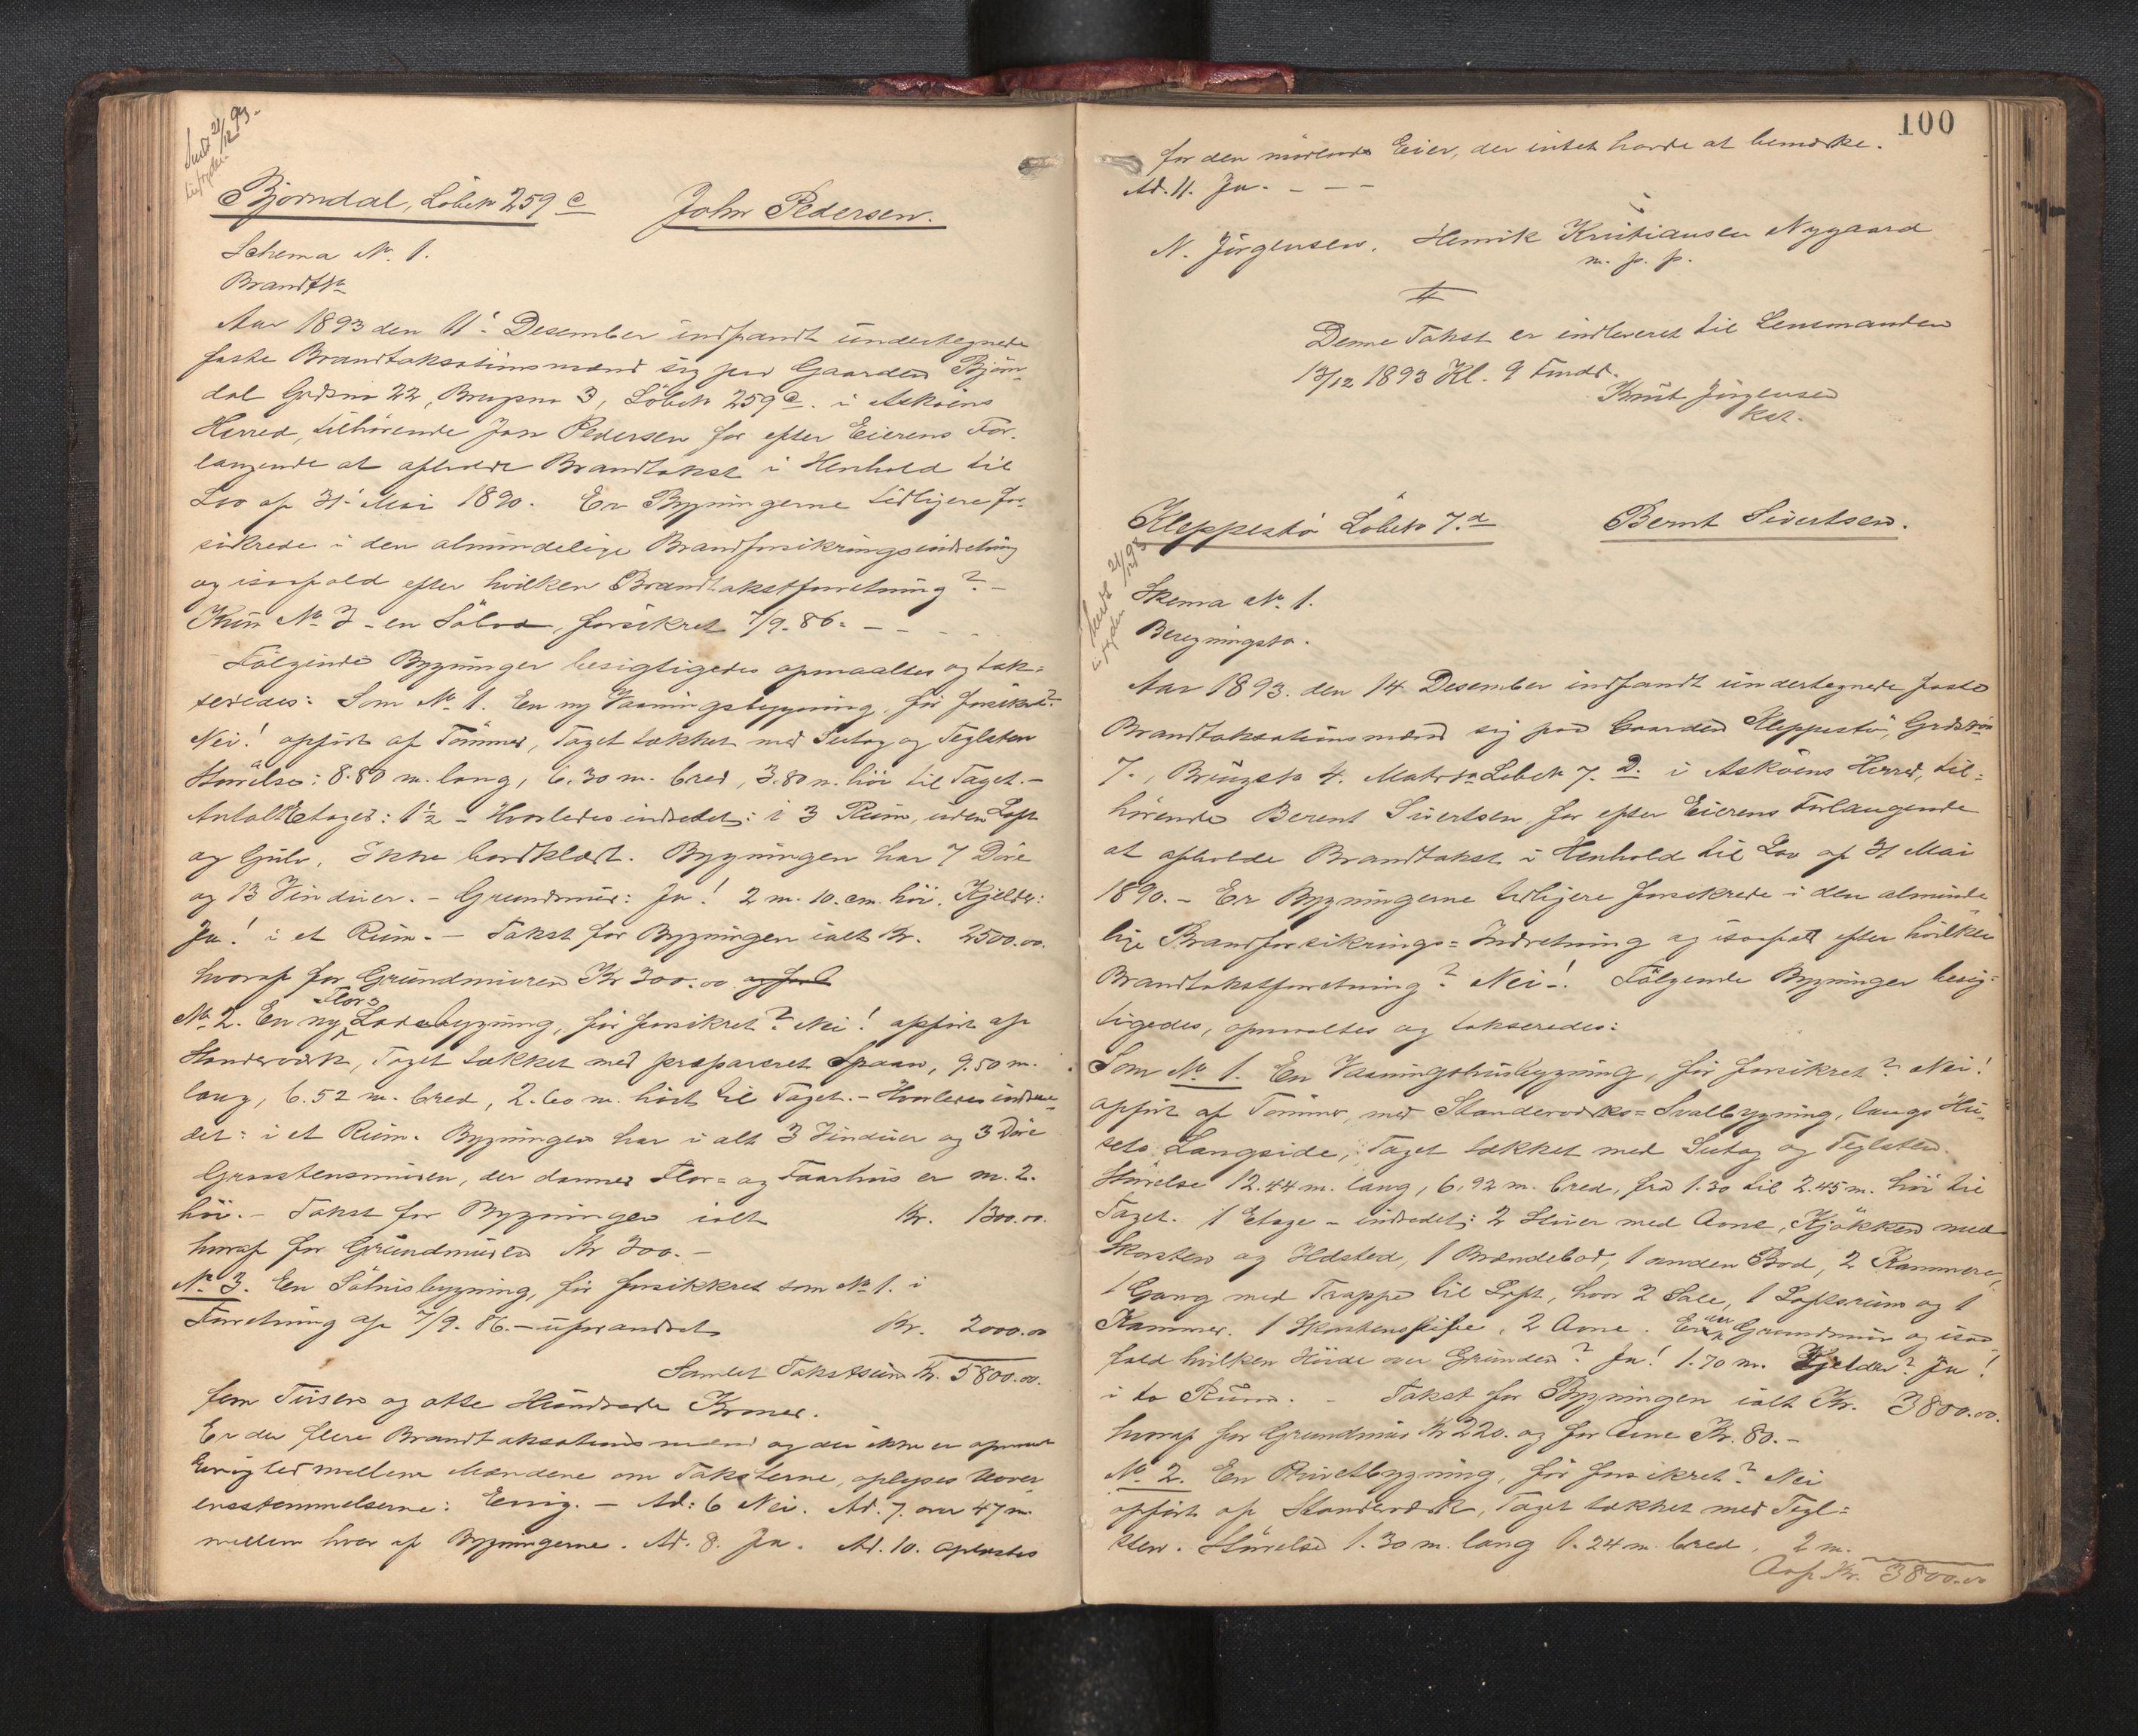 Sendt 21/12 93.-
Bjørndal, Löbeno 259 c
John Pedersen.
Schema No. 1.
Brandtno
Aar 1893 den 11te Desember indfandt undertegnede
faste Brandtaksationsmænd sig paa Gaarden Bjørn-
dal Grdsno 22, Brugsno 3, Löbeno 259 c. i Askøens
Herred, tilhørende Jon Pedersen for efter Eierens For-
langende at afholde Brandtakst i Henhold til
Lov af 31te Mai 1890. Er Bygningerne tidligere for-
sikrede i den almindelige Brandforsikringsindretning
og isaafald efter hvilken Brandtakstforretning? -
Kun No 3 - en Söbod, forsikret 7/9. 86. - - - -
Følgende Bygninger besigtigedes opmaaltes og tak-
seredes: Som No 1. En ny Vaaningsbygning, før forsikret?
Nei! opført af Tømmer, Taget tækket med Sutag og Teglsten
Størelse: 8.80 m. lang, 6.30 m. bred, 3.80 m. høi til Taget. -
Antal Etager: 1½ - Hvorledes indredet: i 3 Rum, uden Loft
og Gulv, Ikke bordklædt. Bygningen har 7 Døre
og 13 Vinduer. - Grundmur: Ja! 2 m. 10. cm. høi. Kjelder:
Ja! i et Rum. - Takst for Bygningen ialt Kr. 2500.00.
hvoraf for Grundmuren Kr 300.00 og for
No 2. En ny Flor- Ladebygning, før forsikret? Nei! opført af
Standerværk, Taget tækket med præpareret Spaan, 9.50 m.
lang, 6.52 m. bred, 2.60 m. høit til Taget. - Hvorledes indre-
det: i et Rum. Bygningen har i alt 3 Vinduer og 3 Døre
Graastensmuren, der danner Flor- og Faarhus er m. 2.
høi. - Takst for Bygningen ialt Kr. 1300.00.
hvoraf for Grundmuren Kr 300. -
No 3. En Söhusbygning, før forsikkret som No 1. i
Forretning af 7/9. 86. - uforandret Kr. 2000.00
Samlet Takstsum Kr. 5800.00.
fem Tusen og otte Hundrede Kroner.
Er der flere Brandtaksationsmænd og der ikke er opnaaet
Enighed mellem Mændene om Taksterne, oplyses Uover-
ensstemmelserne: Enig. - Ad: 6 Nei. Ad. 7. over 47 m.
mellem hver af Bygningerne. Ad. 8. Ja. Ad. 10. oplæstes
100
for den mødende Eier, der intet havde at bemærke.
Ad. 11. Ja. - - -
N. Jörgensen. Henrik Kristiansen Nygaard
m. p. p.
Denne Takst er indleveret til Lensmanden
13/12 1893 Kl. 9 Fmdd.
Knut Jörgensen
kst.
Kleppestø Löbeno 7. d
Bernt Sivertsen.
Sendt 21/12 93
Skema No. 1.
Bygningsno.
Aar 1893. den 14 Desember indfandt undertegnede faste
Brandtaksationsmænd sig paa Gaarden Kleppestø, Grdsno
7., Brugsno 4. Matrno Löbeno 7. D. i Askøens Herred, til-
hørende Berent Sivertsen, for efter Eierens Forlangende
at afholde Brandtakst i Henhold til Lov af 31 Mai
1890. - Er Bygningerne tidligere forsikrede i den alminde
lige Brandforsikrings-Indretning og isaafald efter hvilken
Brandtakstforretning? Nei-! Følgende Bygninger besig-
tigedes, opmaaltes og takseredes:
Som No 1. En Vaaningshusbygning, før forsikret? Nei!
opført af Tømmer, med Standerværks-Svalbygning, langs Hu-
sets Langside, Taget tækket med Sutag og Teglsten.
Størelse 12.44 m. lang, 6.92 m. bred, fra 1.30 til 2.45 m. høi til
Taget. 1 Etage - indredet: 2 Stuer med Ovne, Kjøkken med
Skorsten og Ildsted, 1 Brændebod, 1 anden Bod, 2 Kammere,
1 Gang med Trappe til Loft, hvor 2 Sale, 1 Loftsrum og 1
Kammer. 1 Skorstenspibe, 2 Ovne. Er der Grundmur og isaa-
fald hvilken Høide over Grunden? Ja! 1.70 m. Kjelder? Ja!
i to Rum. - Takst for Bygningen ialt Kr. 3800.00.
hvoraf for Grundmur Kr 220. og for Ovne Kr. 80. -
No. 2. En Privetbygning, før forsikret? Nei
opført af Standerværk, Taget tækket med Tegl-
sten. Størelse 1.30 m. lang 1.24 m. bred, 2 m.
Overf. Kr. 3800.00